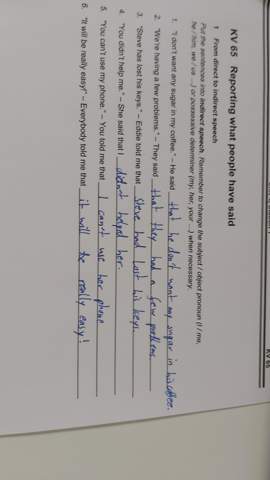 KV 65
KV 65 Reporting what people have said
1 From direct to indirect speech
Put the sentences into indirect speech. Remember to change the subject / object pronoun (I / me,
he / him, we / us ...) or possessive determiner (my, her, your ...) when necessary.
1. "I don't want any sugar in my coffee." – He said that he don't want any sugar in his coffee.
2. "We're having a few problems." – They said that they had a few problems.
3. "Steve has lost his keys." – Eddie told me that Steve had lost his keys.
4. "You didn't help me." – She said that I didn't helped her.
5. "You can't use my phone." – You told me that I can't use her phone
6. "It will be really easy!" – Everybody told me that it will be really easy!